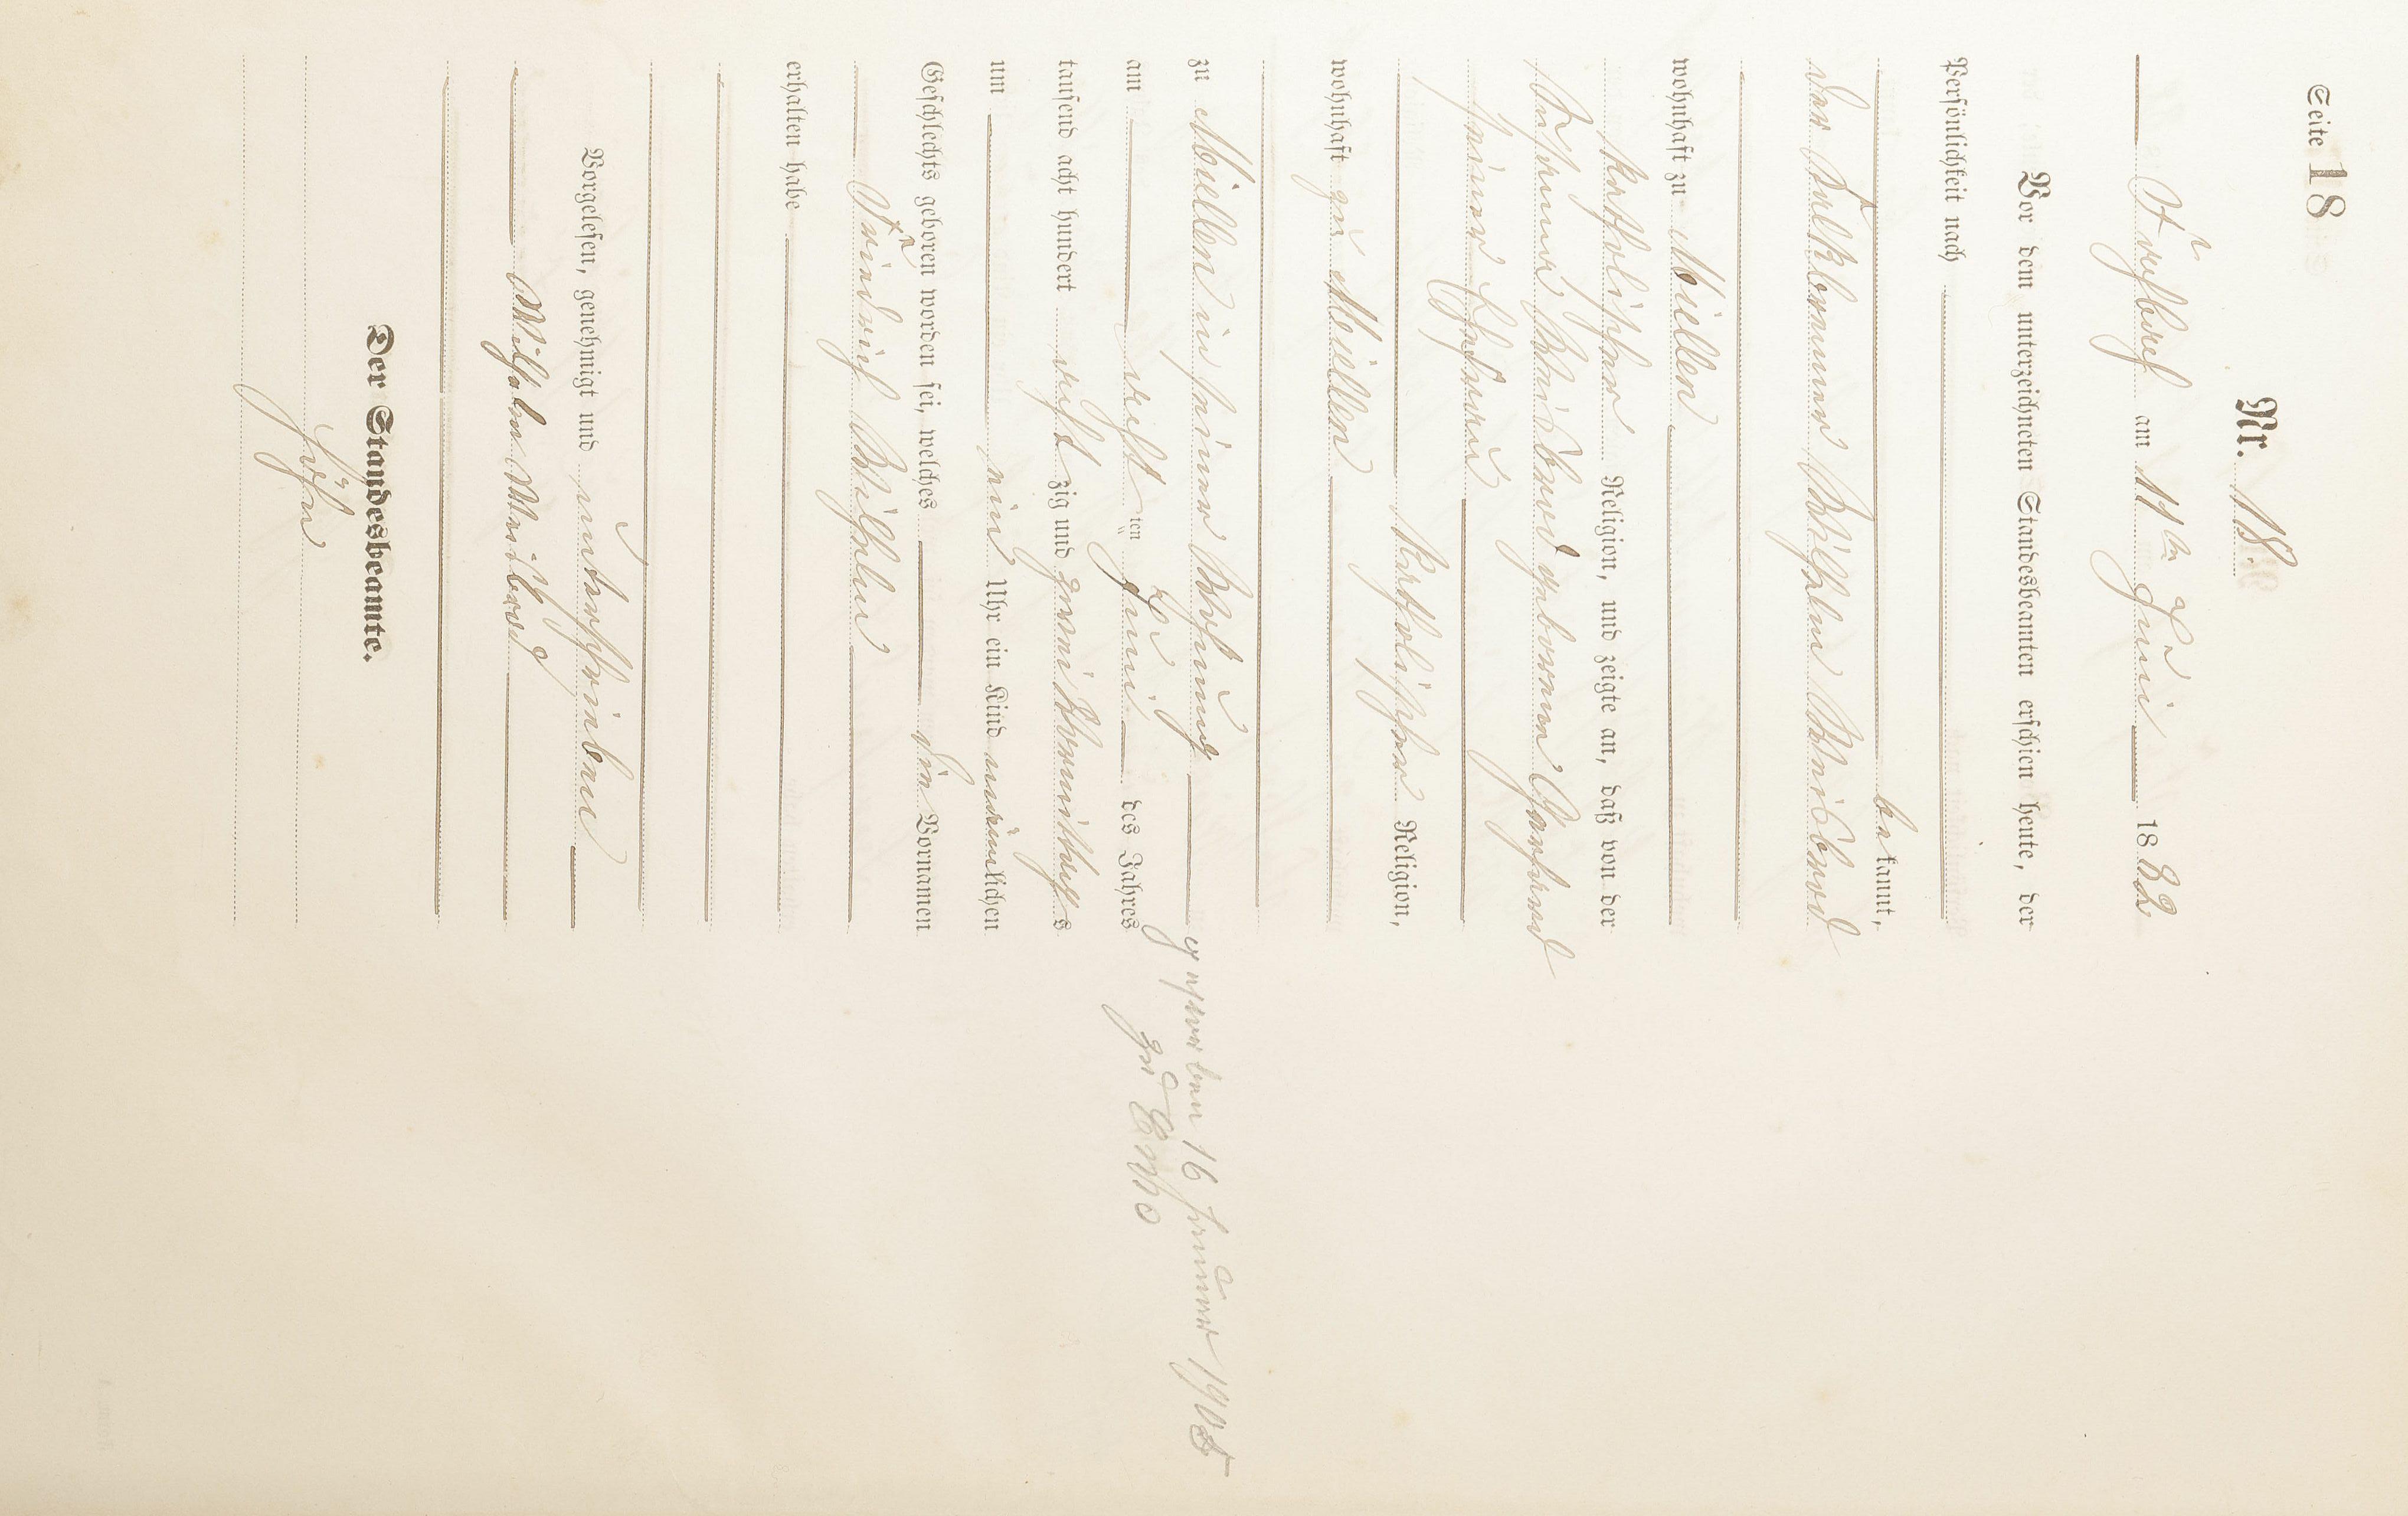 Seite 18
Nr. 18.
Fruchbuch am 11ten Juni 1882
Vor dem unterzeichneten Standesbeamten erschien heute, der
Persönlichkeit nach
bekannt,
der Kalkbrenner Wilhelm Weisbrod
wohnhaft zu Miellen
katholischer Religion, und zeigte an, daß von der
Weisbrod geborenen
seiner Ehefrau
katholischer Religion,
wohnhaft zu Miellen
zu Miellen in seiner Wohnung
am acht ten Juni des Jahres
tausend acht hundert acht zig und zwei Vormittags
um ein Uhr ein Kind männlichen
Geschlechts geboren worden sei, welches die Vornamen
Friedrich Wilhelm
erhalten habe
Vorgelesen, genehmigt und unterschrieben
Wilhelm Weisbrod
Der Standesbeamte.
Höhn
gestorben 16 Januar 1905
zu Ems